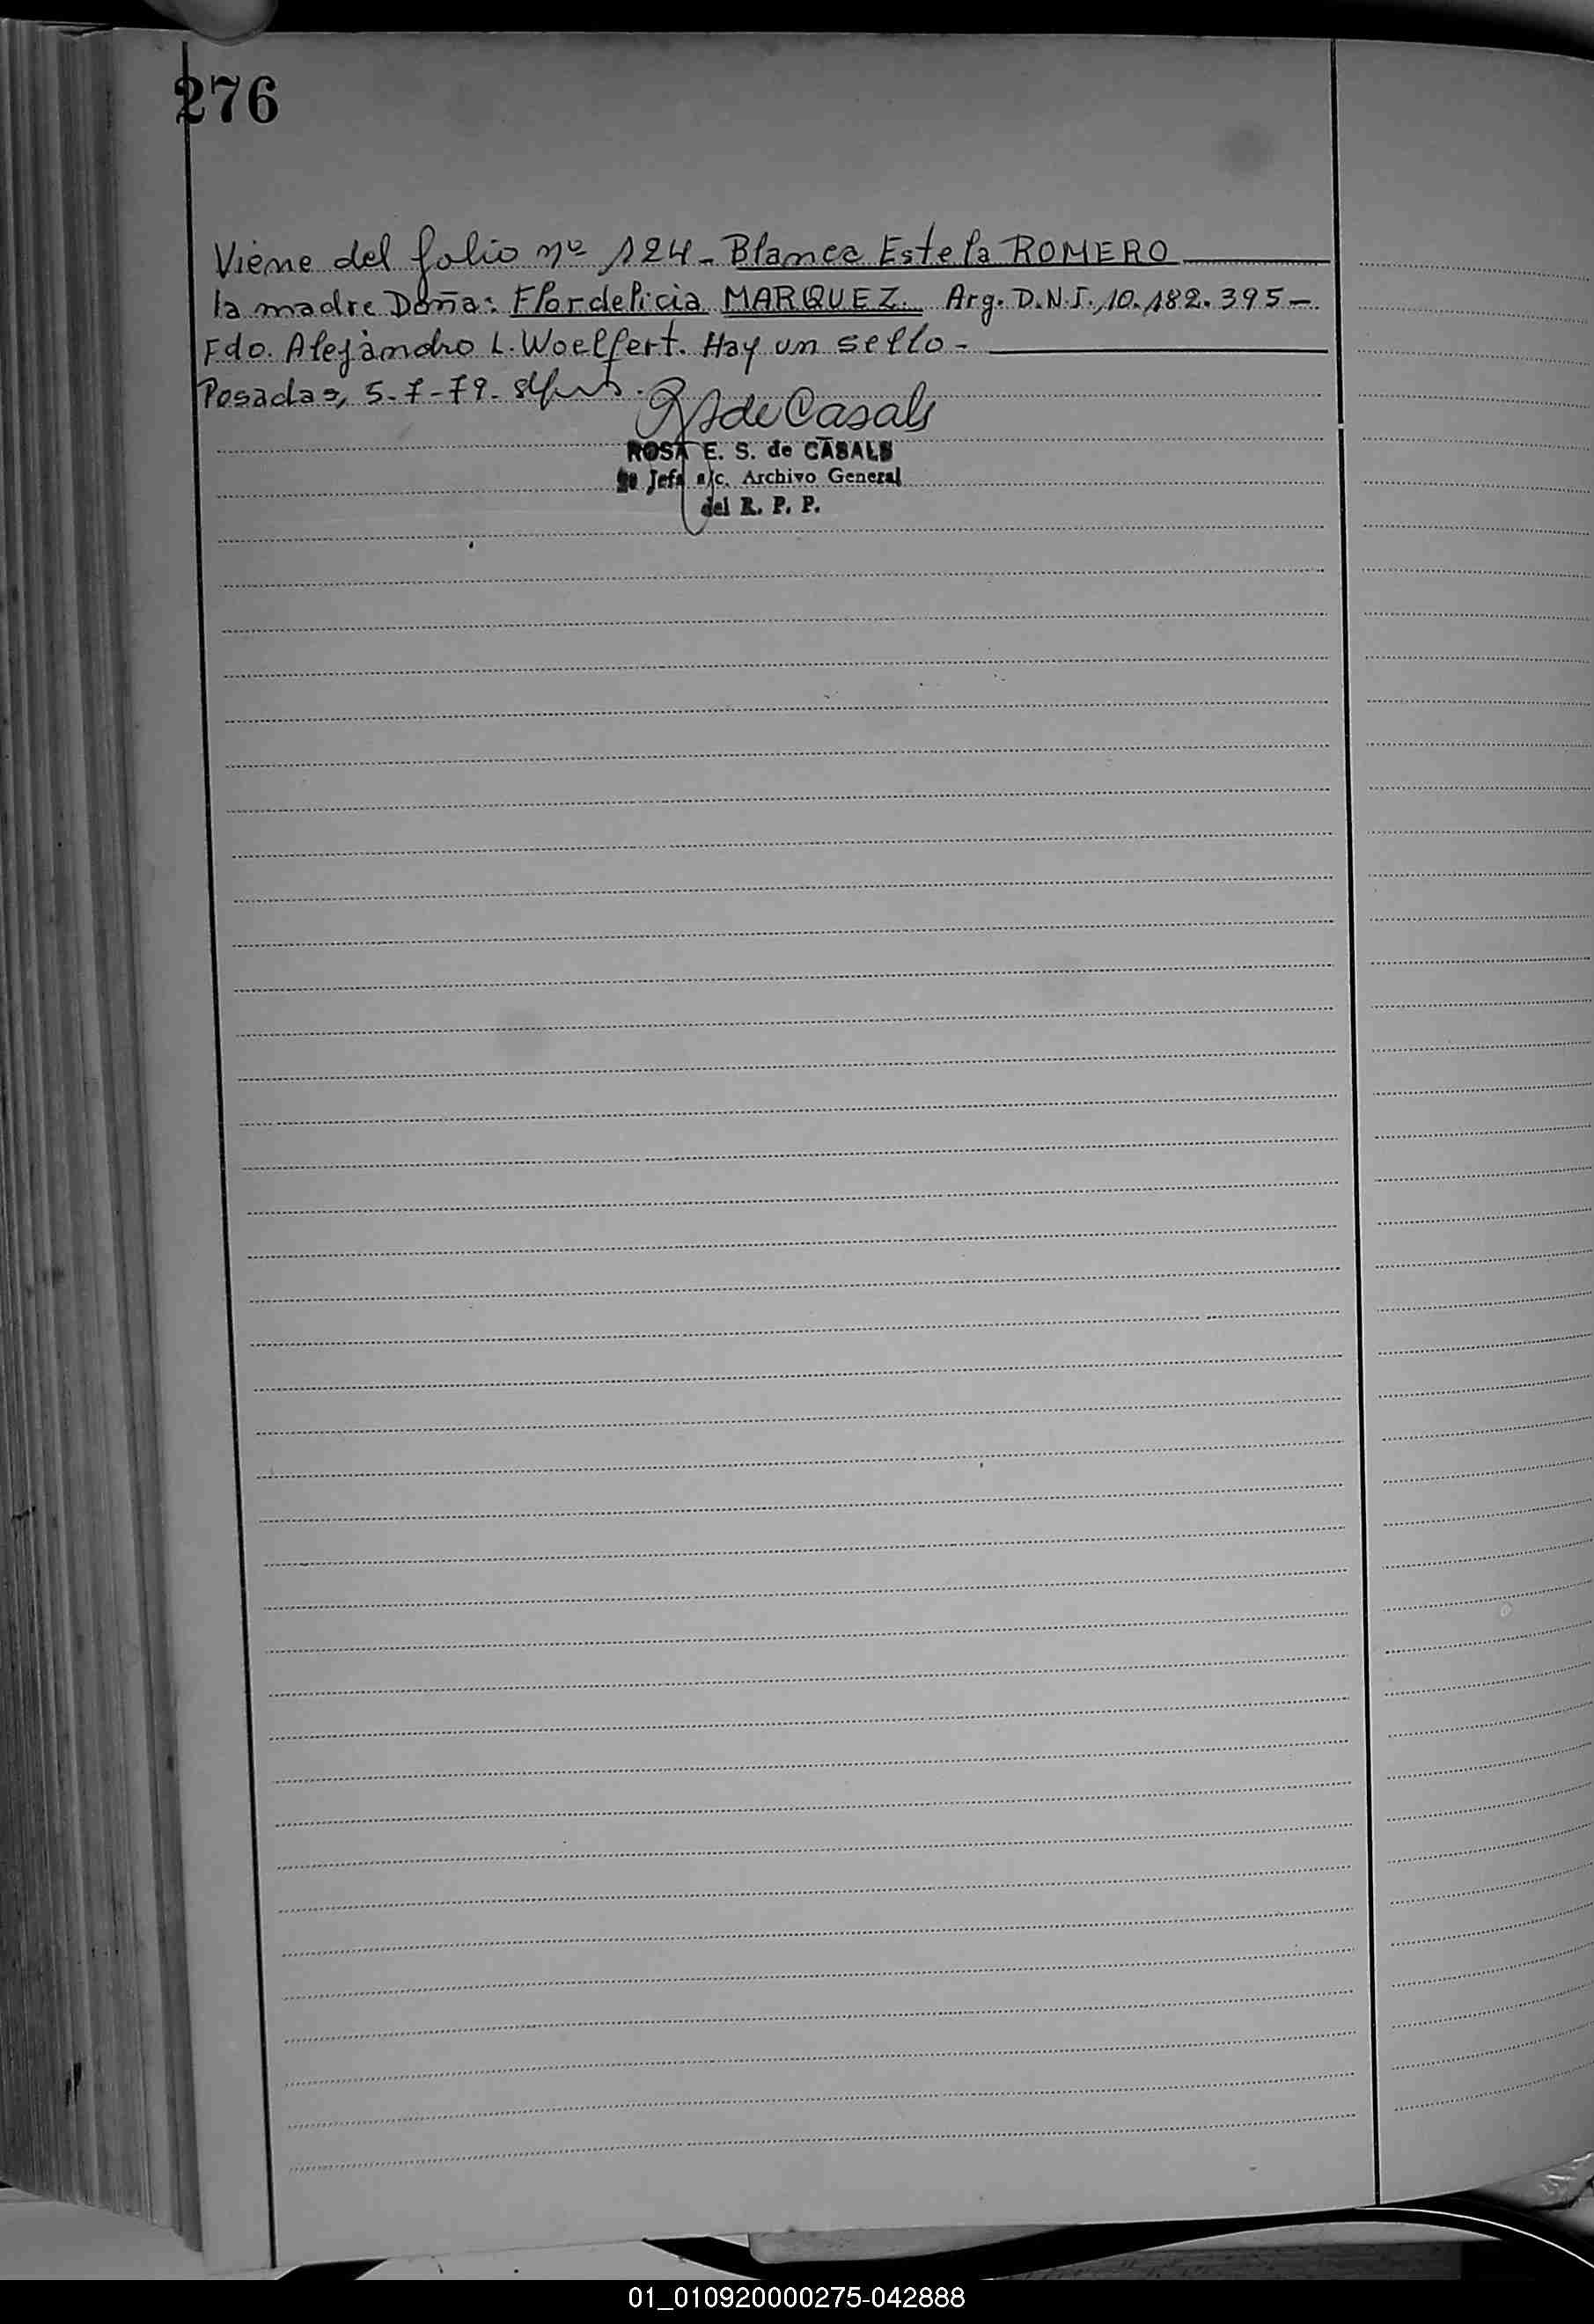 276
Viene del folio nº 124 - Blanca Estela ROMERO
la madre Doña: Flordelicia MARQUEZ. Arg. D.N.I. 10.182.395 -
Fdo. Alejandro L. Woelfert. Hay un sello -
Posadas, 5-7-79.
de Casals
ROSA E. S. de CASALS
Jefa a/c. Archivo General
del R. P. P.
01_010920000275-042888